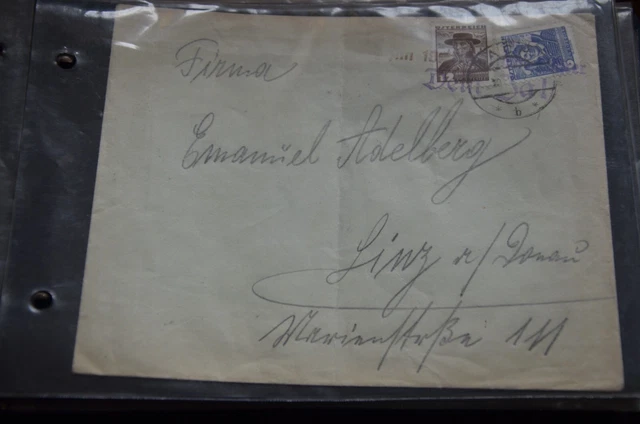 Firma
Emanuel Adelberg
Linz a/Donau
Marienstraße 111
ÖSTERREICH
b